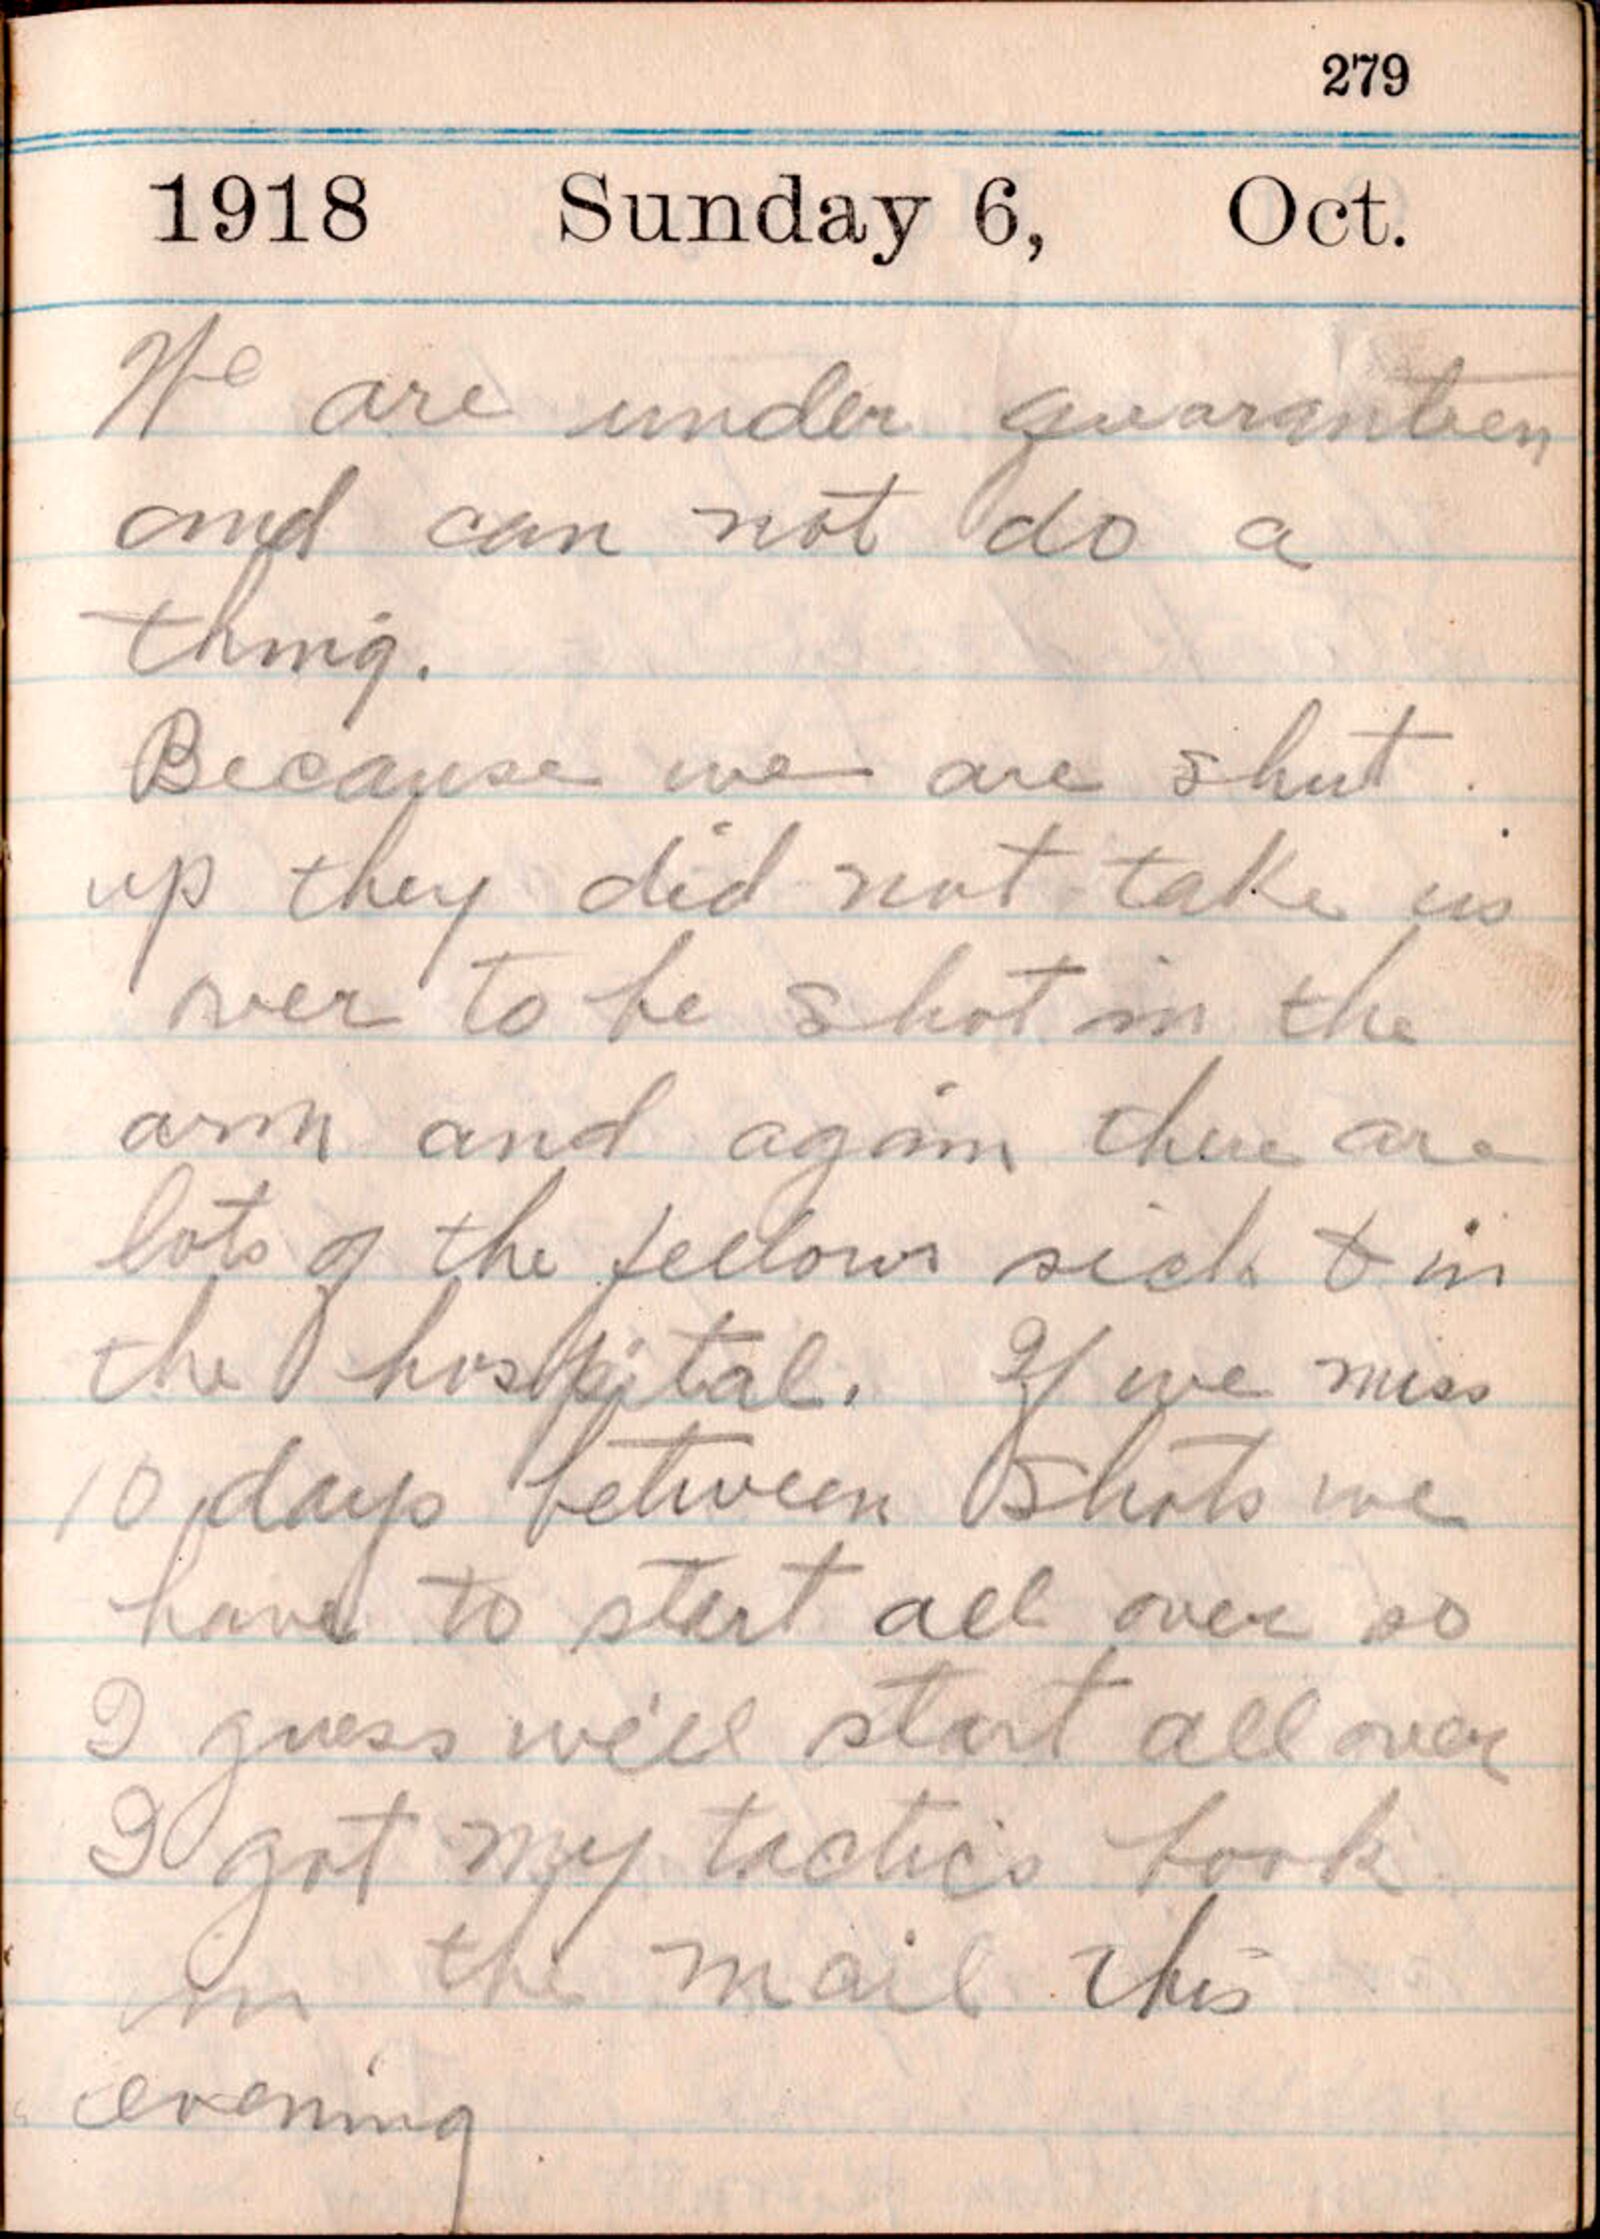 279
1918 Sunday 6, Oct.
We are under quaranteen
and can not do a
thing.
Because we are shut
up they did not take us
over to be shot in the
arm and again there are
lots of the fellows sick & in
the hospital. If we miss
10 days between shots we
have to start all over so
I guess we'll start all over
I got my tactics book
in the mail this
evening